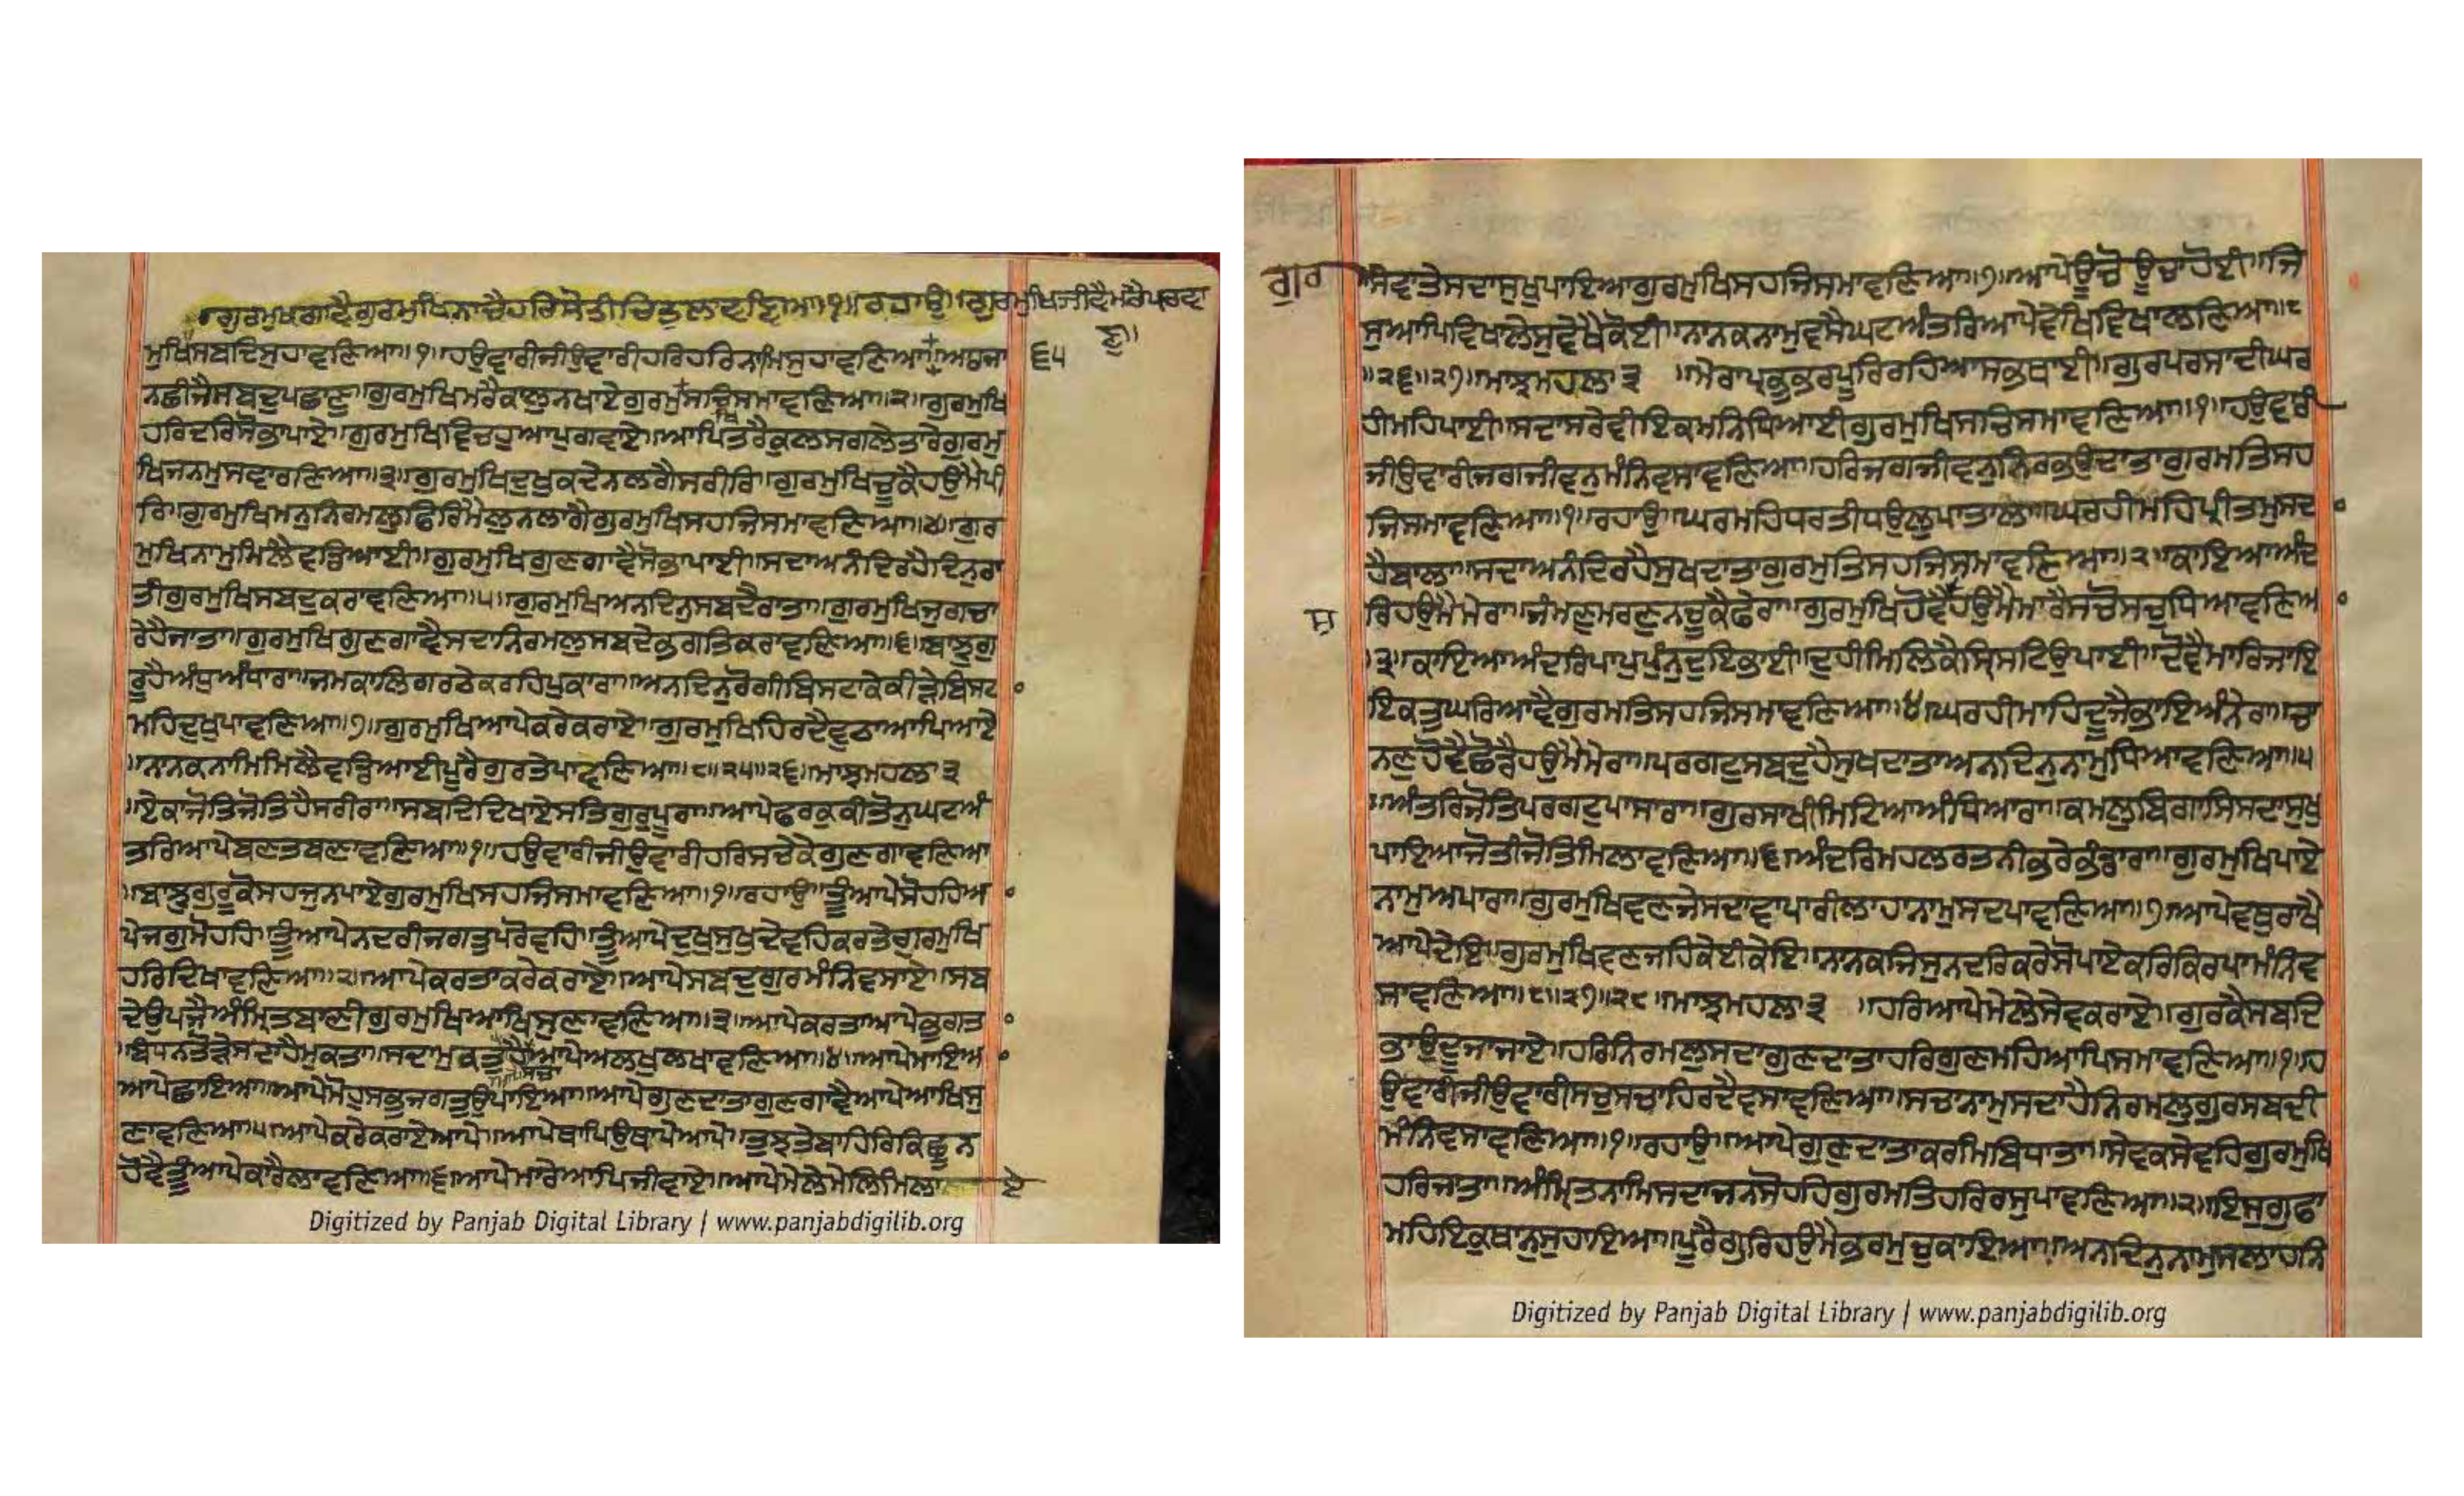 ਗੁਰਮੁਖਿਗਾਵੈਗੁਰਮੁਖਿਨਾਚੈਹਰਿਸੇਤੀਚਿਤੁਲਾਵਣਿਆ॥੧॥ਰਹਾਉ॥ਗੁਰਮੁਖਿਜੀਵੈਮਰੈਪਰਵਾ
ਣੁ॥
ਮੁਖਿਸਬਦਿਸੁਹਾਵਣਿਆ॥੧॥ਹਉਵਾਰੀਜੀਉਵਾਰੀਹਰਿਹਰਿਨਾਮਿਸੁਹਾਵਣਿਆ॥ਆਰਜਾ
੬੫
ਨਛੀਜੈਸਬਦੁਪਛਾਣੁ॥ਗੁਰਮੁਖਿਮਰੈਕਾਲੁਨਖਾਏਗੁਰਮੁਸਚਿਸਮਾਵਣਿਆ॥੨॥ਗੁਰਮੁਖਿ
ਹਰਿਦਰਿਸੋਭਾਪਾਏ॥ਗੁਰਮੁਖਿਵਿਚਹੁਆਪੁਗਵਾਏ॥ਆਪਿਤਰੈਕੁਲਸਗਲੇਤਾਰੇਗੁਰਮੁ
ਖਿਜਨਮੁਸਵਾਰਣਿਆ॥੩॥ਗੁਰਮੁਖਿਦੁਖੁਕਦੇਨਲਗੈਸਰੀਰਿ॥ਗੁਰਮੁਖਿਚੂਕੈਹਉਮੈਪੀ
ਰਿ॥ਗੁਰਮੁਖਿਮਨੁਨਿਰਮਲੁਫਿਰਿਮੈਲੁਨਲਾਗੈਗੁਰਮੁਖਿਸਹਜਿਸਮਾਵਣਿਆ॥੪॥ਗੁਰ
ਮੁਖਿਨਾਮੁਮਿਲੈਵਡਿਆਈ॥ਗੁਰਮੁਖਿਗੁਣਗਾਵੈਸੋਭਾਪਾਈ॥ਸਦਾਅਨੰਦਿਰਹੈਦਿਨੁਰਾ
ਤੀਗੁਰਮੁਖਿਸਬਦੁਕਰਾਵਣਿਆ॥੫॥ਗੁਰਮੁਖਿਅਨਦਿਨੁਸਬਦੇਰਾਤਾ॥ਗੁਰਮੁਖਿਜੁਗਚਾ
ਰੇਹੈਜਾਤਾ॥ਗੁਰਮੁਖਿਗੁਣਗਾਵੈਸਦਾਨਿਰਮਲੁਸਬਦੇਭਗਤਿਕਰਾਵਣਿਆ॥੬॥ਬਾਝੁਗੁ
ਰੂਹੈਅੰਧੁਅੰਧਾਰਾ॥ਜਮਕਾਲਿਗਰਠੇਕਰਹਿਪੁਕਾਰਾ॥ਅਨਦਿਨੁਰੋਗੀਬਿਸਟਾਕੇਕੀੜੇਬਿਸਟ
ਮਹਿਦੁਖੁਪਾਵਣਿਆ॥੭॥ਗੁਰਮੁਖਿਆਪੇਕਰੇਕਰਾਏ॥ਗੁਰਮੁਖਿਹਿਰਦੈਵੁਠਾਆਪਿਆਏ
॥ਨਾਨਕਨਾਮਿਮਿਲੈਵਡਿਆਈਪੂਰੇਗੁਰਤੇਪਾਵਣਿਆ॥੮॥੨੫॥੨੬॥ਮਾਝਮਹਲਾ੩
॥ਏਕਾਜੋਤਿਜੋਤਿਹੈਸਰੀਰਾ॥ਸਬਦਿਦਿਖਾਏਸਤਿਗੁਰੁਪੂਰਾ॥ਆਪੇਫਰਕੁਕੀਤੋਨੁਘਟਅੰ
ਤਰਿਆਪੇਬਣਤਬਣਾਵਣਿਆ॥੧॥ਹਉਵਾਰੀਜੀਉਵਾਰੀਹਰਿਸਚੇਕੇਗੁਣਗਾਵਣਿਆ
॥ਬਾਝੁਗੁਰੂਕੋਸਹਜੁਨਪਾਏਗੁਰਮੁਖਿਸਹਜਿਸਮਾਵਣਿਆ॥੧॥ਰਹਾਉ॥ਤੂੰਆਪੇਸੋਹਹਿਆ
ਪੇਜਗੁਮੋਹਹਿ॥ਤੂੰਆਪੇਨਦਰੀਜਗਤੁਪਰੋਵਹਿ॥ਤੂੰਆਪੇਦੁਖੁਸੁਖੁਦੇਵਹਿਕਰਤੇਗੁਰਮੁਖਿ
ਹਰਿਦਿਖਾਵਣਿਆ॥੨॥ਆਪੇਕਰਤਾਕਰੇਕਰਾਏ॥ਆਪੇਸਬਦੁਗੁਰਮੰਨਿਵਸਾਏ॥ਸਬ
ਦੇਉਪਜੈਅੰਮ੍ਰਿਤਬਾਣੀਗੁਰਮੁਖਿਆਖਿਸੁਣਾਵਣਿਆ॥੩॥ਆਪੇਕਰਤਾਆਪੇਭੁਗਤਾ
॥ਬੰਧਨਤੋੜੇਸਦਾਹੈਮੁਕਤਾ॥ਸਦਾਮੁਕਤੁਹੈਆਪੇਅਲਖੁਲਖਾਵਣਿਆ॥੪॥ਆਪੇਮਾਇਆ
ਆਪੇਛਾਇਆ॥ਆਪੇਮੋਹੁਸਭੁਜਗਤੁਉਪਾਇਆ॥ਆਪੇਗੁਣਦਾਤਾਗੁਣਗਾਵੈਆਪੇਆਖਿਸੁ
ਣਾਵਣਿਆ॥੫॥ਆਪੇਕਰੇਕਰਾਏਆਪੇ॥ਆਪੇਥਾਪਿਉਥਾਪੇਆਪੇ॥ਤੁਝਤੇਬਾਹਰਿਕਿਛੂਨ
ਹੋਵੈਤੂੰਆਪੇਕਾਰੈਲਾਵਣਿਆ॥੬॥ਆਪੇਮਾਰੇਆਪਿਜੀਵਾਏ॥ਆਪੇਮੇਲੇਮੇਲਿਮਿਲਾ ਏ
Digitized by Panjab Digital Library | www.panjabdigilib.org
ਸੇਵਾਤੇਸਦਾਸੁਖੁਪਾਇਆਗੁਰਮੁਖਿਸਹਜਿਸਮਾਵਣਿਆ॥੭॥ਆਪੇਊਚੋਊਚਾਹੋਈ॥ਜਿ
ਗੁਰ
ਸੁਆਪਿਵਿਖਾਲੇਸੁਵੇਖੈਕੋਈ॥ਨਾਨਕਨਾਮੁਵਸੈਘਟਅੰਤਰਿਆਪੇਵੇਖਿਵਿਖਾਲਣਿਆ॥੮
॥੨੬॥੨੭॥ਮਾਝਮਹਲਾ੩ ॥ਮੇਰਾਪ੍ਰਭੁਭਰਪੂਰਿਰਹਿਆਸਭਥਾਈ॥ਗੁਰਪਰਸਾਦੀਘਰ
ਹੀਮਹਿਪਾਈ॥ਸਦਾਸਰੇਵੀਇਕਮਨਿਧਿਆਈਗੁਰਮੁਖਿਸਚਿਸਮਾਵਣਿਆ॥੧॥ਹਉਵਾਰੀ
ਜੀਉਵਾਰੀਜਗਜੀਵਨੁਮੰਨਿਵਸਾਵਣਿਆ॥ਹਰਿਜਗਜੀਵਨੁਨਿਰਭਉਦਾਤਾਗੁਰਮਤਿਸਹ
ਜਿਸਮਾਵਣਿਆ॥੧॥ਰਹਾਉ॥ਘਰਮਹਿਧਰਤੀਧਉਲੁਪਾਤਾਲਾ॥ਘਰਹੀਮਹਿਪ੍ਰੀਤਮੁਸਦਾ
ਹੈਬਾਲਾ॥ਸਦਾਅਨੰਦਿਰਹੈਸੁਖਦਾਤਾਗੁਰਮਤਿਸਹਜਿਸਮਾਵਣਿਆ॥੨॥ਕਾਇਆਅੰਦ
ਰਿਹਉਮੈਮੇਰਾ॥ਜੰਮਣੁਮਰਣੁਨਚੂਕੈਫੇਰਾ॥ਗੁਰਮੁਖਿਹੋਵੈਹਉਮੈਮਾਰੈਸਚੋਸਚੁਧਿਆਵਣਿਆ
ਸੁ
॥੩॥ਕਾਇਆਅੰਦਰਿਪਾਪੁਪੁੰਨੁਦੁਇਭਾਈ॥ਦੁਹੀਮਿਲਿਕੈਸ੍ਰਿਸਟਿਉਪਾਈ॥ਦੋਵੈਮਾਰਿਜਾਇ
ਇਕਤੁਘਰਿਆਵੈਗੁਰਮਤਿਸਹਜਿਸਮਾਵਣਿਆ॥੪॥ਘਰਹੀਮਾਹਿਦੂਜੈਭਾਇਅਨੇਰਾ॥ਚਾ
ਨਣੁਹੋਵੈਛੋਡੈਹਉਮੈਮੇਰਾ॥ਪਰਗਟੁਸਬਦੁਹੈਸੁਖਦਾਤਾਅਨਦਿਨੁਨਾਮੁਧਿਆਵਣਿਆ॥੫
॥ਅੰਤਰਿਜੋਤਿਪਰਗਟੁਪਾਸਾਰਾ॥ਗੁਰਸਾਖੀਮਿਟਿਆਅੰਧਿਆਰਾ॥ਕਮਲੁਬਿਗਾਸਿਸਦਾਸੁਖੁ
ਪਾਇਆਜੋਤੀਜੋਤਿਮਿਲਾਵਣਿਆ॥੬॥ਅੰਦਰਿਮਹਲਰਤਨੀਭਰੇਭੰਡਾਰਾ॥ਗੁਰਮੁਖਿਪਾਏ
ਨਾਮੁਅਪਾਰਾ॥ਗੁਰਮੁਖਿਵਣਜੇਸਦਾਵਾਪਾਰੀਲਾਹਾਨਾਮੁਸਦਪਾਵਣਿਆ॥੭॥ਆਪੇਵਥੁਰਾਖੈ
ਆਪੇਦੇਇ॥ਗੁਰਮੁਖਿਵਣਜਹਿਕੇਈਕੇਇ॥ਨਾਨਕਜਿਸੁਨਦਰਿਕਰੇਸੋਪਾਏਕਰਿਕਿਰਪਾਮੰਨਿਵ
ਸਾਵਣਿਆ॥੮॥੨੭॥੨੮॥ਮਾਝਮਹਲਾ੩ ॥ਹਰਿਆਪੇਮੇਲੇਸੇਵਕਰਾਏ॥ਗੁਰਕੈਸਬਦਿ
ਭਾਉਦੂਜਾਜਾਏ॥ਹਰਿਨਿਰਮਲੁਸਦਾਗੁਣਦਾਤਾਹਰਿਗੁਣਮਹਿਆਪਿਸਮਾਵਣਿਆ॥੧॥ਹ
ਉਵਾਰੀਜੀਉਵਾਰੀਸਚੁਸਚਾਹਿਰਦੈਵਸਾਵਣਿਆ॥ਸਚਾਨਾਮੁਸਦਾਹੈਨਿਰਮਲੁਗੁਰਸਬਦੀ
ਮੰਨਿਵਸਾਵਣਿਆ॥੧॥ਰਹਾਉ॥ਆਪੇਗੁਣਦਾਤਾਕਰਮਿਬਿਧਾਤਾ॥ਸੇਵਕਸੇਵਹਿਗੁਰਮੁਖਿ
ਹਰਿਜਾਤਾ॥ਅੰਮ੍ਰਿਤਨਾਮਿਸਦਾਜਨਸੋਹਹਿਗੁਰਮਤਿਹਰਿਰਸੁਪਾਵਣਿਆ॥੨॥ਇਸੁਗੁਫਾ
ਮਹਿਇਕੁਥਾਨੁਸੁਹਾਇਆ॥ਪੂਰੈਗੁਰਿਹਉਮੈਭਰਮੁਚੁਕਾਇਆ॥ਅਨਦਿਨੁਨਾਮੁਸਲਾਹਨਿ
Digitized by Panjab Digital Library | www.panjabdigilib.org